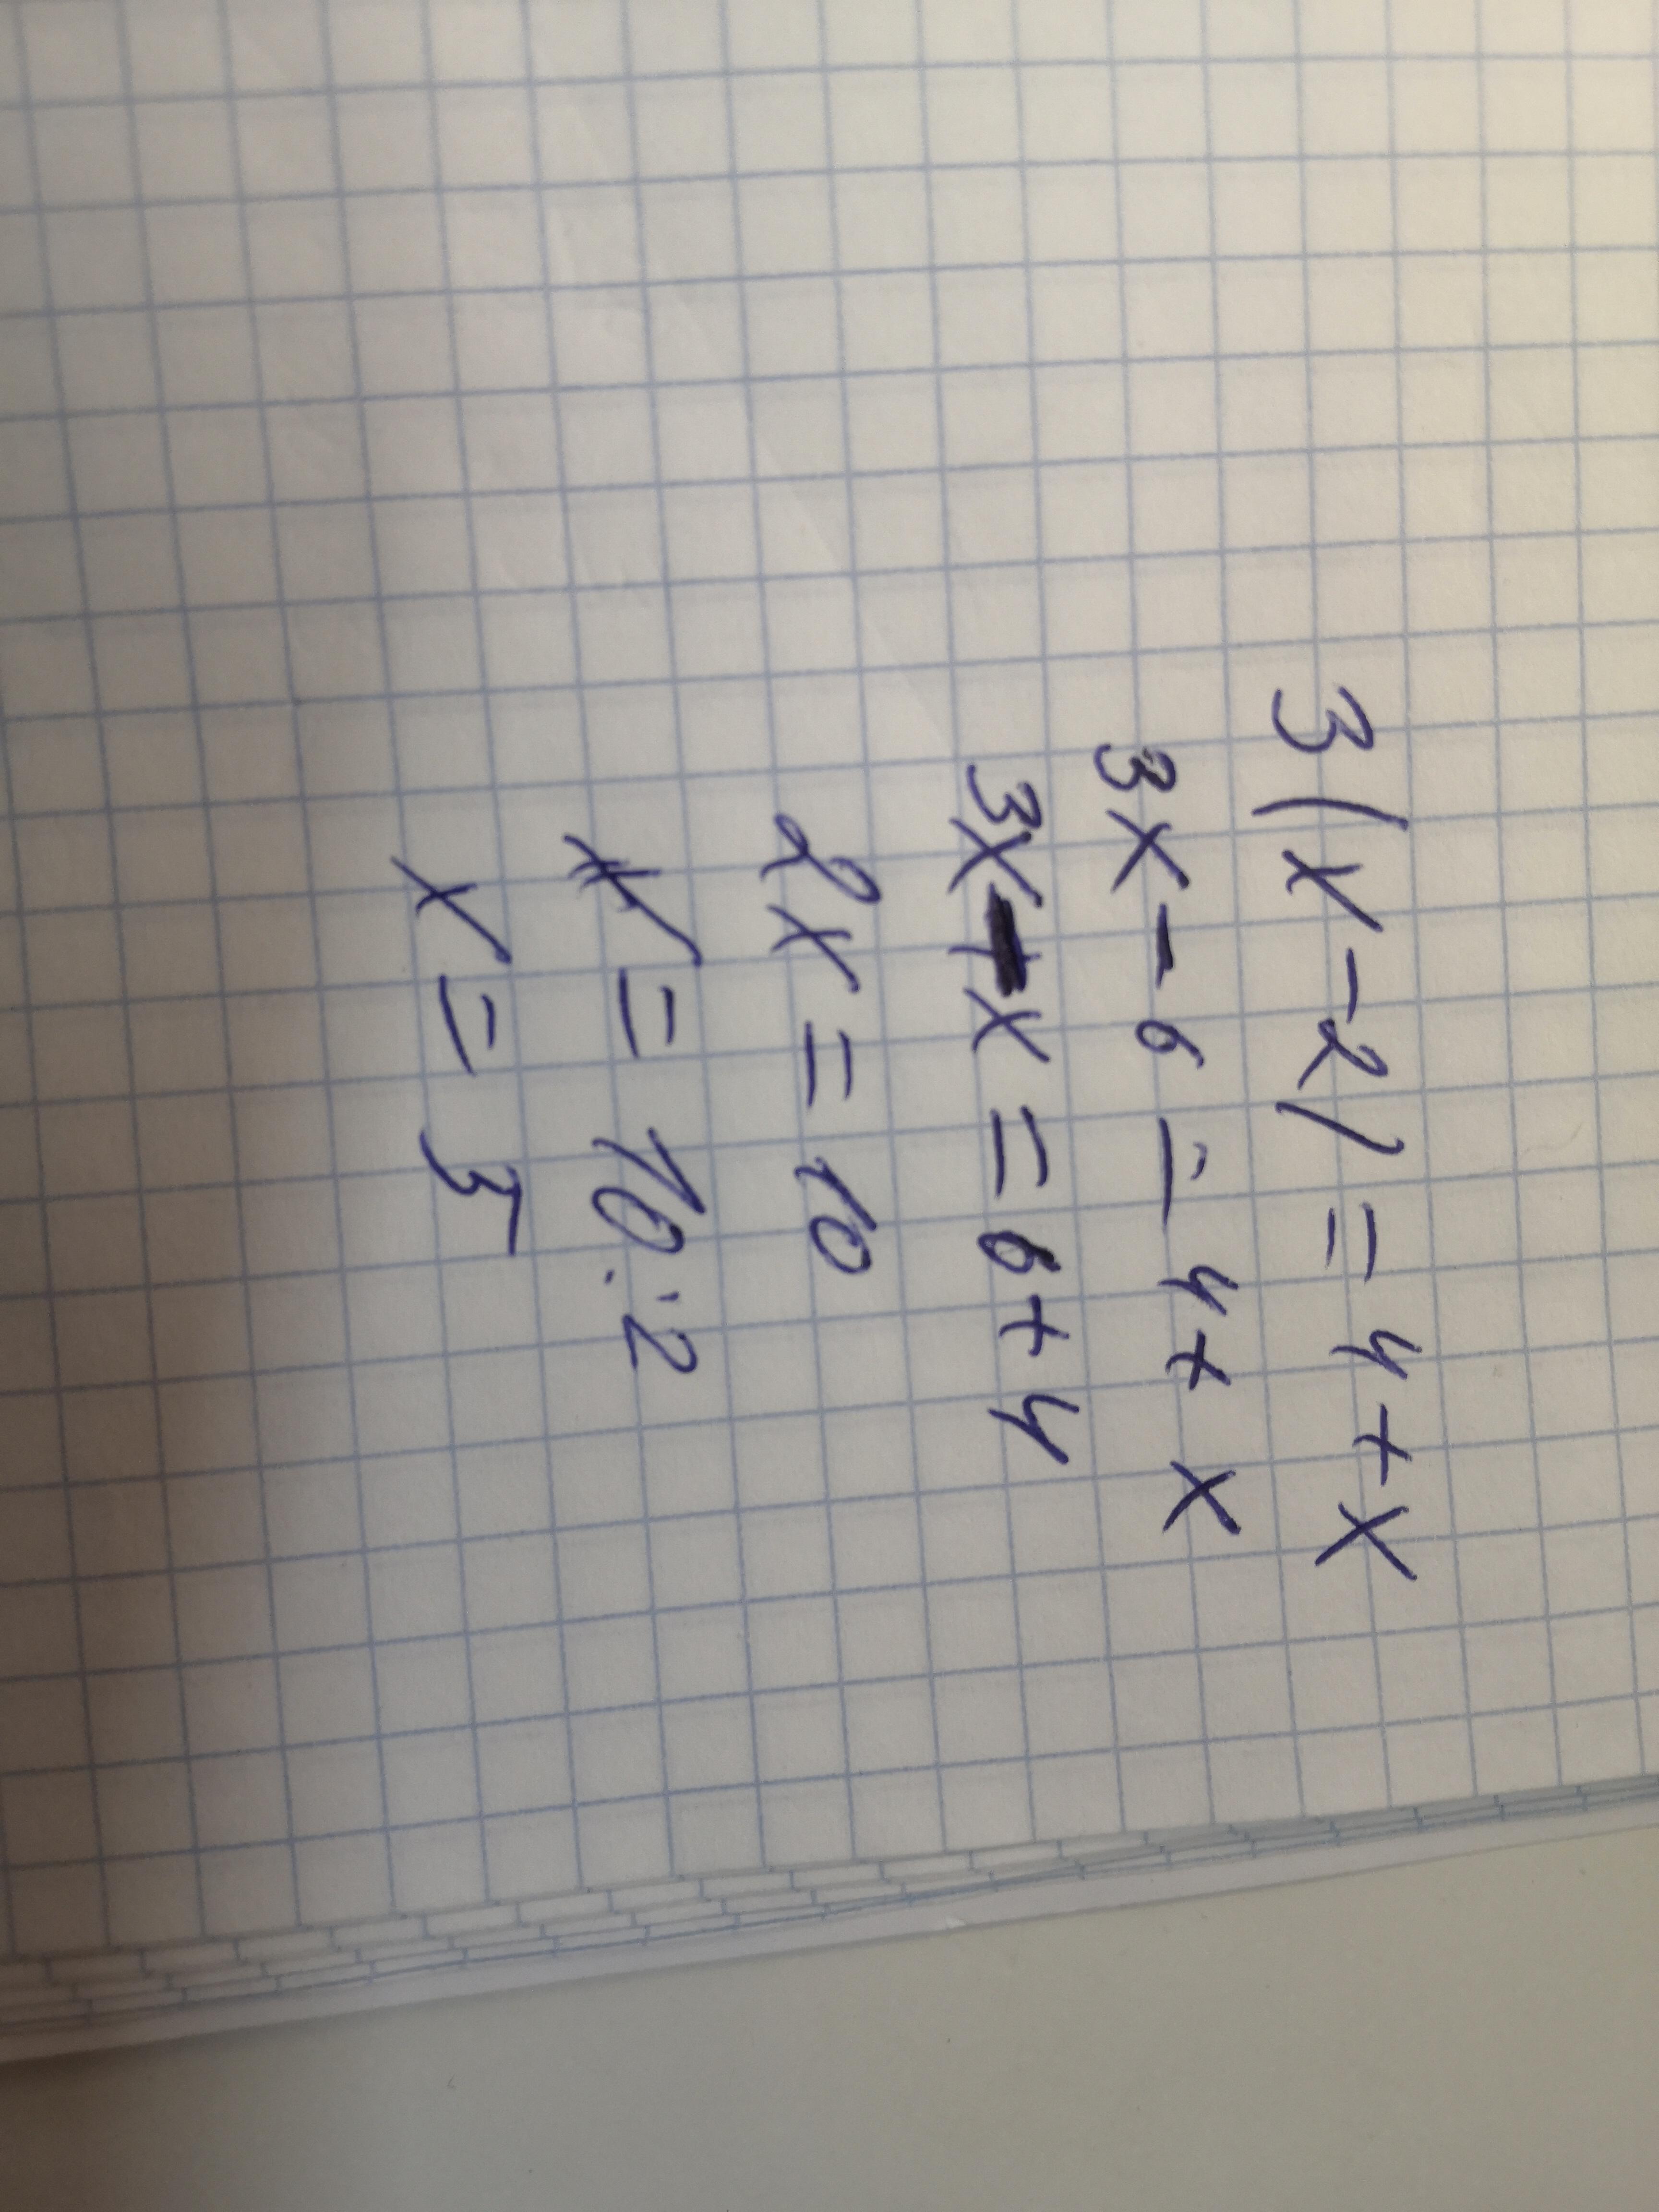 3(x-2)=4+x
3x-6=4+x
3x-x=6+4
2x=10
x=10:2
x=5